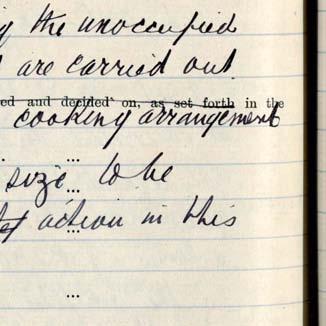 the unoccupied
are carried out
ed and decided on, as set forth in the
cooking arrangements
...
size to be
...
action in this
...
...